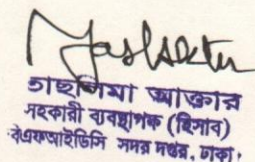 তাছলিমা আক্তার
সহকারী ব্যবস্থাপক (হিসাব)
বিএফআইডিসি সদর দপ্তর, ঢাকা।